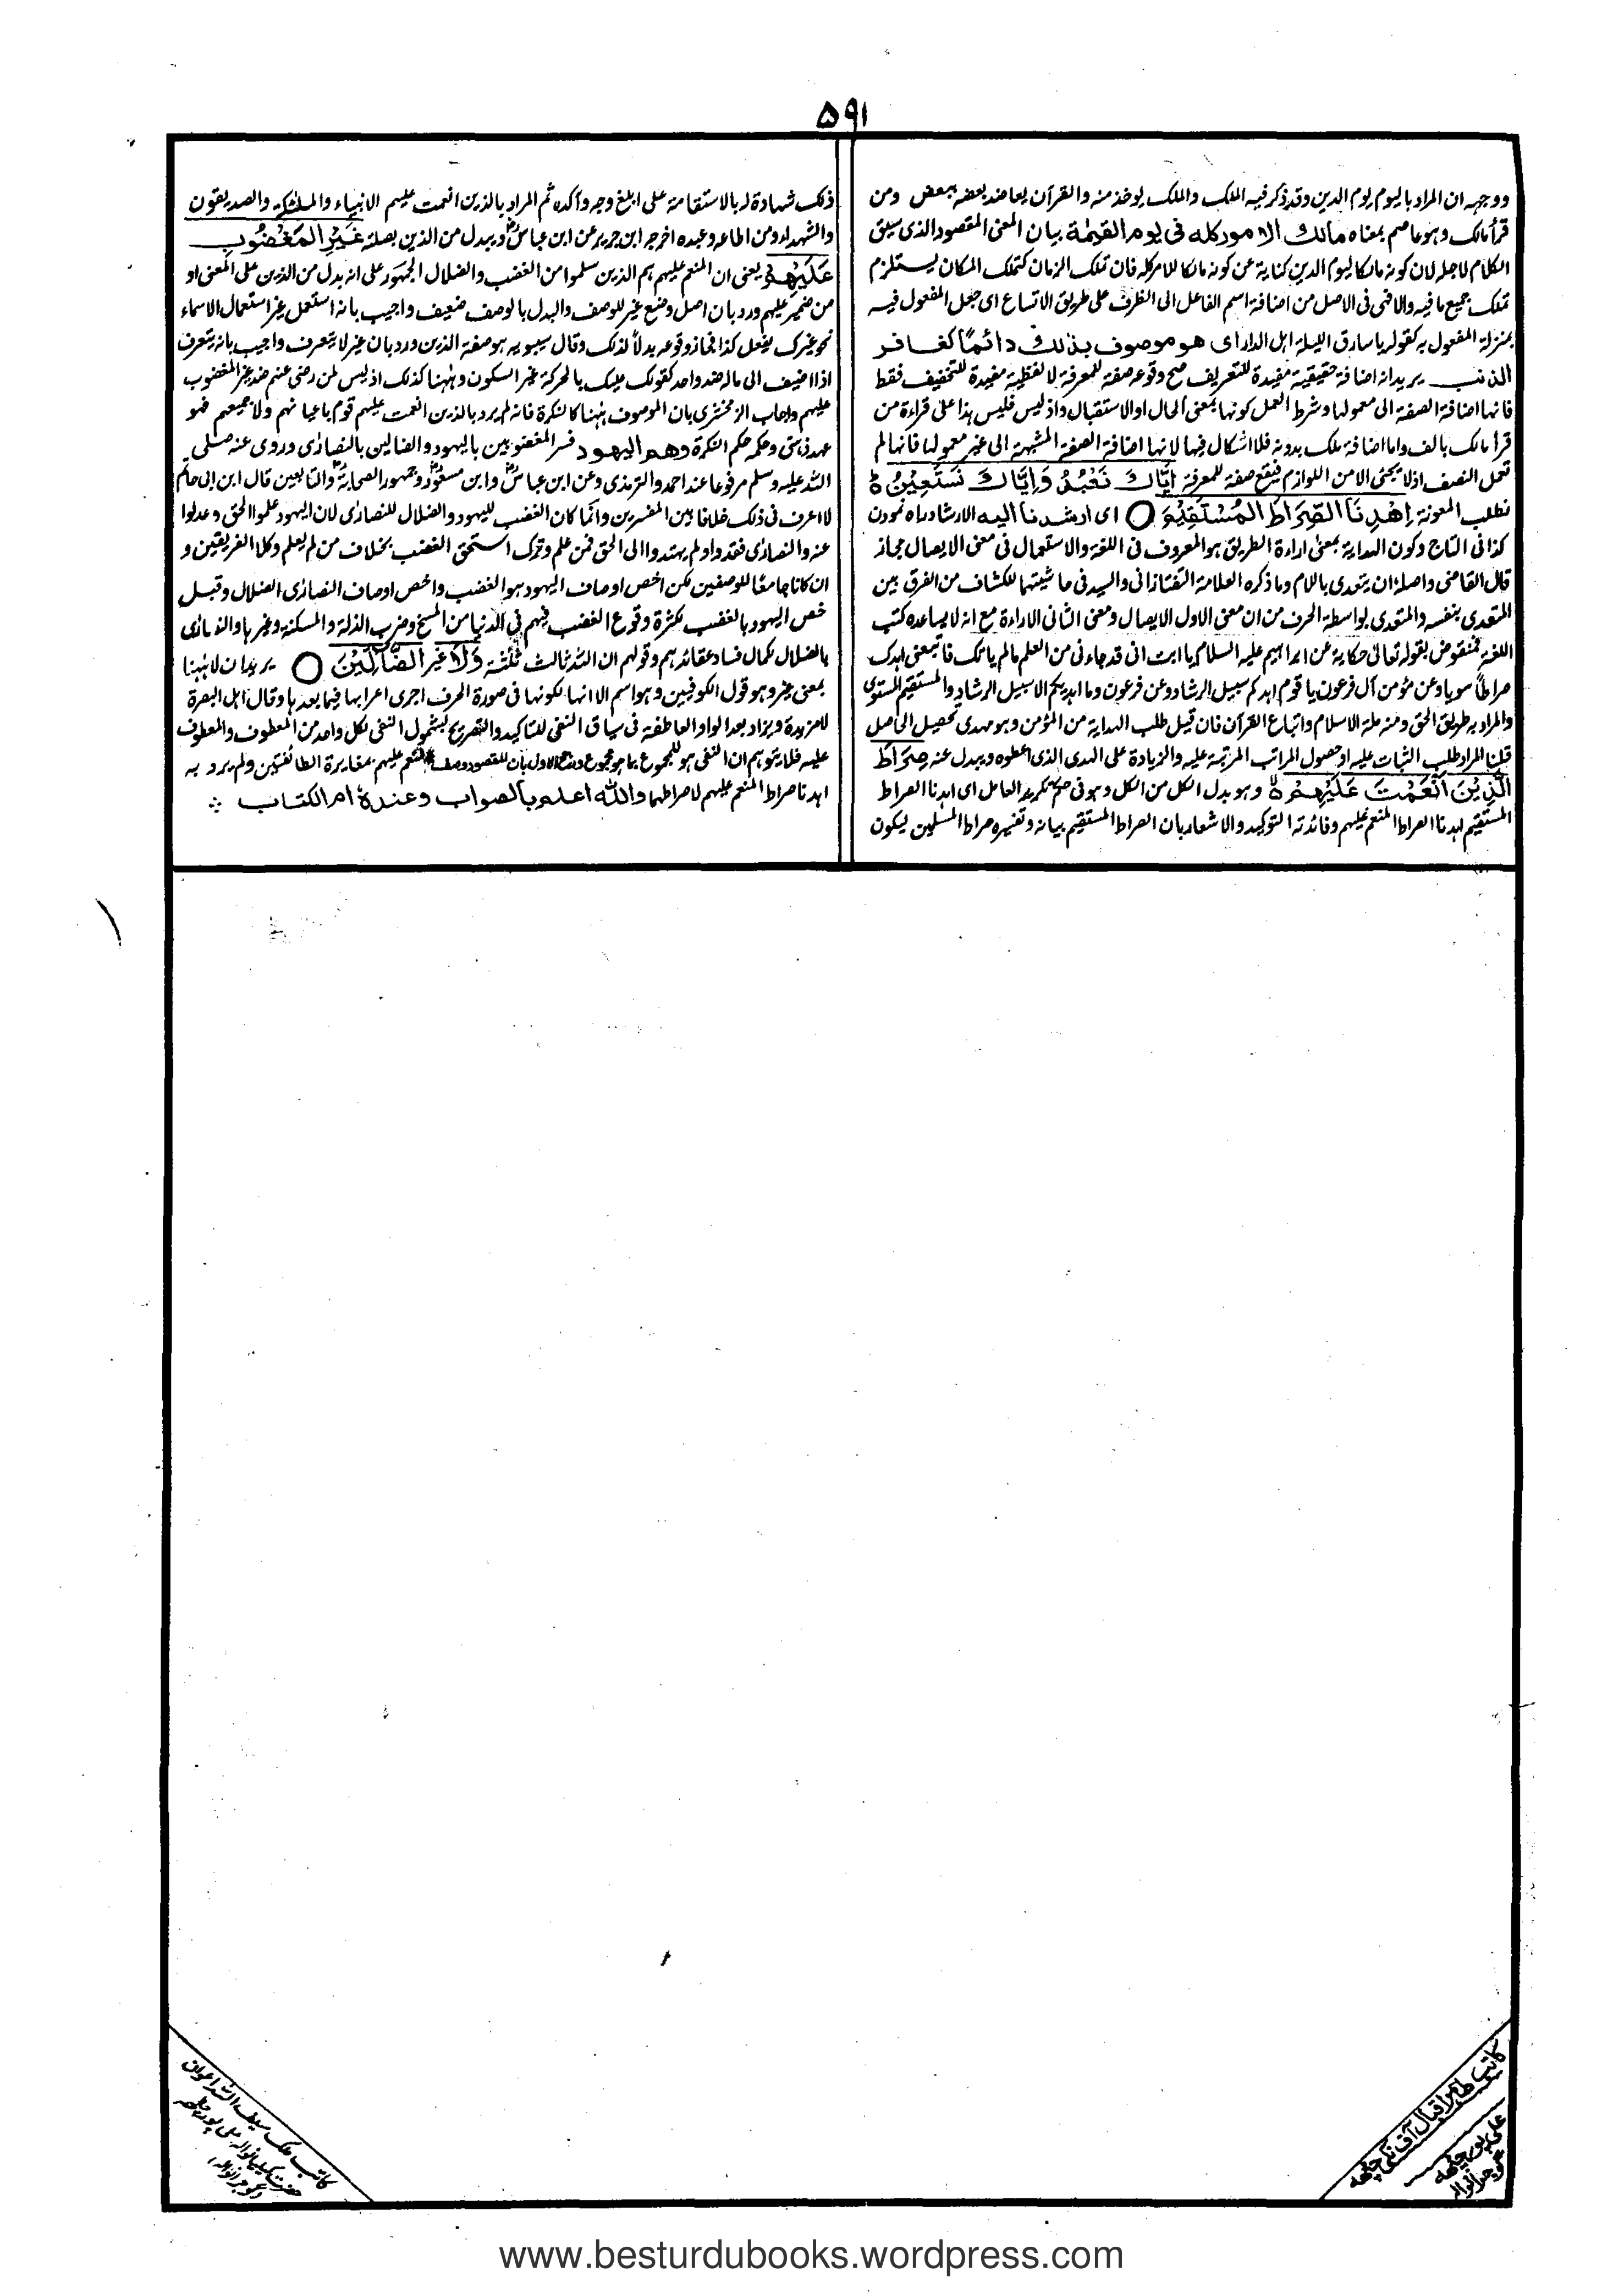 ۵۹۱
ووجهه ان المراد باليوم يوم الدين وقد ذكر فيه الملك والملك يوخذ منه والقرآن يعاضد بعضه ببعض ومن
قرأ مالك وهو عاصم بمعناه مالك الامور كله في يوم القيٰمة بيان المعنى المقصود الذي سيق
الكلام لاجله لان كونه مالكا ليوم الدين كناية عن كونه مالكا للامر كله فان تملك الزمان كتملك المكان يستلزم
تملك جميع ما فيه والافهى في الاصل من اضافة اسم الفاعل الى الظرف على طريق الاتساع اى جعل المفعول فيه
بمنزلة المفعول به كقوله يا سارق الليلة اهل الدار اى هو موصوف بذلك دائمًا كغافر
الذنب يريد انه اضافة حقيقية مفيدة للتعريف صح وقوعه صفة للمعرفة لا لفظية مفيدة للتخفيف فقط
فانها اضافة الصفة الى معمولها وشرط العمل كونها بمعنى الحال او الاستقبال واذ ليس فليس هذا على قراءة من
قرأ مالك بالف واما اضافة ملك بدونه فلا اشكال فيها لانها اضافة الصفة المشبهة الى غير معمولها فانها لم
تعمل النصف اذ لا يجئى الا من اللوازم فيقع صفة للمعرفة اِيَّاكَ نَعْبُدُ وَاِيَّاكَ نَسْتَعِيْنُ ط
نطلب المعونة اِهْدِنَا الصِّرَاطَ المُسْتَقِيْمَ ○ اى ارشدنا اليه الارشاد راه نمودن
كذا فى التاج وكون الهداية بمعنى اراءة الطريق هو المعروف فى اللغة والاستعمال فى معنى الايصال مجاز
قال القاضى واصله ان يتعدى باللام وما ذكره العلامة التفتازانى والسيد فى حاشيتهما للكشاف من الفرق بين
المتعدى بنفسه والمتعدى بواسطة الحرف من ان معنى الاول الايصال ومعنى الثانى الاراءة مع انه لا يساعده كتب
اللغة فمنقوض بقوله تعالى حكاية عن ابراهيم عليه السلام يا ابت انى قد جاءنى من العلم ما لم ياتك فاتبعنى اهدك
صراطًا سويا وعن مؤمن آل فرعون يا قوم اهدكم سبيل الرشاد وعن فرعون وما اهديكم الا سبيل الرشاد والمستقيم المستوى
والمراد به طريق الحق ومنه ملة الاسلام واتباع القرآن فان قيل طلب الهداية من المؤمن وهو مهدى تحصيل الحاصل
قلنا المراد طلب الثبات عليه او حصول المراتب المرتبة عليه والزيادة على الهدى الذى اعطوه ويبدل عنه صِرَاطَ
الَّذِيْنَ اَنْعَمْتَ عَلَيْهِمْ ۵ وهو بدل الكل من الكل وهو فى حكم تكرير العامل اى اهدنا الصراط
المستقيم اهدنا الصراط المنعم عليهم وفائدته التوكيد والاشعار بان الصراط المستقيم بيانه وتفسيره صراط المسلمين ليكون
ذلك شهادة له بالاستقامة على ابلغ وجه وآكده ثم المراد بالذين انعمت عليهم الانبياء والملٰئكة والصديقون
والشهداء ومن اطاعه وعبده اخرجه ابن جرير عن ابن عباس ويبدل من الذين بصلته غَيْرِ المَغْضُوْبِ
عَلَيْهِمْ يعنى ان المنعم عليهم هم الذين سلموا من الغضب والضلال الجمهور على انه بدل من الذين على المعنى او
من ضمير عليهم ورد بان اصل وضع غير للوصف والبدل بالوصف ضعيف واجيب بانه استعمل غير استعمال الاسماء
نحو غيرك يفعل كذا فجاز وقوعه بدلًا لذلك وقال سيبويه هو صفة الذين ورد بان غير لا يتعرف واجيب بانه يتعرف
اذا اضيف الى ما له ضد واحد كقولك عليك بالحركة غير السكون وههنا كذلك اذ ليس لمن رضى عنهم ضد غير المغضوب
عليهم واجاب الزمخشرى بان الموصوف ههنا كالنكرة فانه لم يرد بالذين انعمت عليهم قوم باعيانهم ولا جميعهم فهو
عهد ذهنى وحكمه حكم النكرة وهم اليهود فسر المغضوبين باليهود والضالين بالنصارٰى وروى عنه صلى
الله عليه وسلم مرفوعا عند احمد والترمذى وعن ابن عباس وابن مسعود وجمهور الصحابة والتابعين قال ابن ابى حاتم
لا اعرف فى ذلك خلافا بين المفسرين وانما كان الغضب لليهود والضلال للنصارٰى لان اليهود علموا الحق وعدلوا
عنه والنصارٰى فقدوا ولم يهتدوا الى الحق فمن علم وترك استحق الغضب بخلاف من لم يعلم وكلا الفريقين و
ان كانا جامعًا للوصفين لكن اخص اوصاف اليهود هو الغضب واخص اوصاف النصارٰى الضلال وقيل
خص اليهود بالغضب لكثرة وقوع الغضب فيهم فى الدنيا من المسخ وضرب الذلة والمسكنة وغيرها والنصارٰى
بالضلال لكمال فساد عقائدهم وقولهم ان الله ثالث ثلٰثة وَلَا غير الضَّآلِّيْنَ ○ يريد ان لا ههنا
بمعنى غير وهو قول الكوفيين وهو اسم الا انها لكونها فى صورة الحرف اجرى اعرابها فيما بعدها وقال اهل البصرة
لا مزيدة ويزاد بعد الواو العاطفة فى سياق النفى للتاكيد والتصريح بشمول النفى لكل واحد من المعطوف والمعطوف
عليه فلا يتوهم ان النفى هو للمجموع بما هو مجموع ورجح الاول بان المقصود وصف المنعم عليهم بمغايرة الطائفتين ولم يرد به
اهدنا صراط المنعم عليهم لا صراطهما والله اعلم بالصواب وعندهٗ ام الكتاب ؞
كاتب ملك سيف الله اعوان
كاتب طاہر اقبال آف
علی پور چٹھہ
گوجرانوالہ
www.besturdubooks.wordpress.com